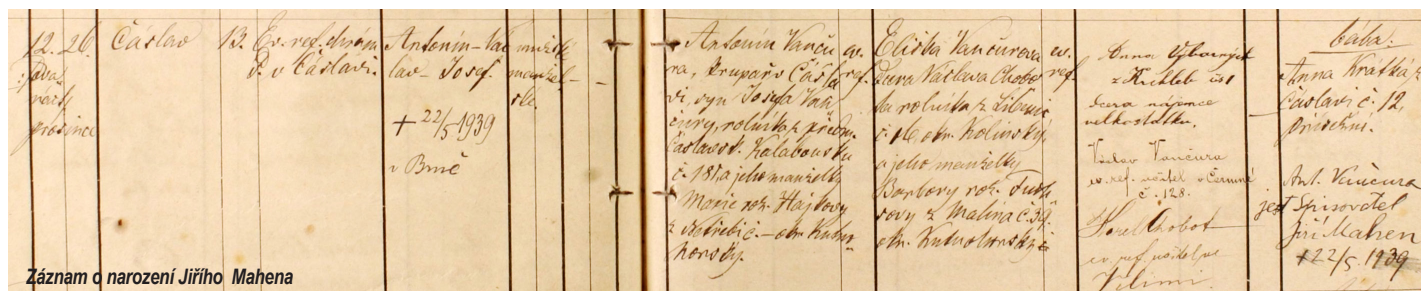 12. 26.
dva
cátý
prosince
Čáslav
13.
Ev. ref. chrám
P. v Čáslavi.
Antonín - Vác
lav - Josef.
+ 22/5 1939
v Brně
mužské
manžel-
ské.
Antonín Vanču
ra, krupař v Čásla
vi, syn Josefa Van
čury, rolníka z předm.
Čáslavsk. Kalabousku
č. 181 a jeho manželky
Marie roz. Hájkovy
z Netřebic. - okr. Kutno
horský.
ev.
ref.
Eliška Vančurova
dcera Václava Chobo
ta rolníka z Libenic
č. 16, okr. Kolínský
a jeho manželky
Barbory roz.
z Malína č. 39.
okr. Kutnohorský
ev.
ref.
Anna
z
dcera nájemce
velkostatku.
Václav Vančura
ev. ref. učitel v
č. 128.
Karel Chobot
ev. ref. učitel ve
Vilimi.
bába:
Anna Krátká z
Čáslavi č. 12,
přísežní.
Ant. Vančura
jest spisovatel
Jiří Mahen
+ 22/5 1939
Záznam o narození Jiřího Mahena